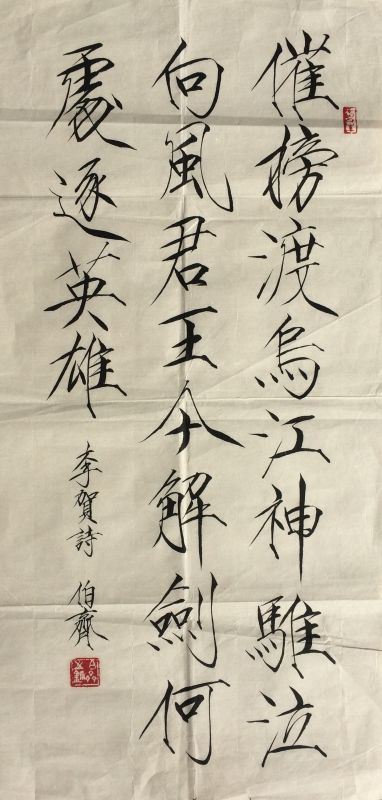 催榜渡烏江神騅泣
向風君王今解劍何
處逐英雄
李賀詩 伯齊